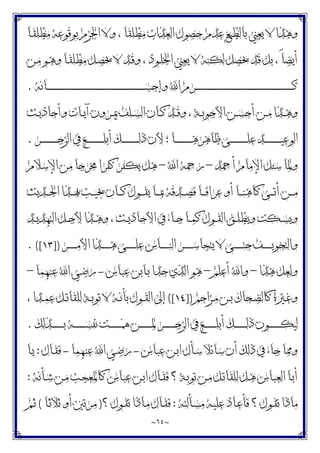 وهذا لا يعني بالطبع عدم حصول العذاب مطلقاً ، ولا الجزم بوقوعه مطلقاً
أيضاً ، بل قد يحصل لكنه لا يعني الخلود ، وقد لا يحصل مطلقاً وهو من
كرم الله وإحسانه .
وهذا من أحسن الأجوبة ، وقد كان السلف يمرون آيات وأحاديث
الوعيد على ظاهرها ؛ لأن ذلك أبلغ في الزجر .
ولما سئل الإمام أحمد - رحمه الله - هل يكفر كفراً يخرجه من الإسلام
من أتى كاهناً أو عرافاً فصدقه بما يقول كان يجيب بهذا الحديث
ويسكت ويطلق القول كما جاء في الأحاديث ، وهذا لأجل التهديد
والتخويف حتى لا يتجاسر الناس على هذا الأمر (([١٣])) .
ولعل هذا - والله أعلم - هو الذي حدا بابن عباس - رضي الله عنهما -
وغيره كالضحاك بن مزاحم(([١٤])) إلى القول بأنه لا توبة للقاتل عمداً ،
ليكون ذلك أبلغ في الزجر لمن همت نفسه بذلك .
ومما جاء في ذلك أن سائلاً سأل ابن عباس - رضي الله عنهما - فقال : يا
أبا العباس هل للقاتل من توبة ؟ فقال ابن عباس كالمعجب من شأنه :
ماذا تقول ؟ فأعاد عليه مسألته : فقال ماذا تقول ؟( مرتين أو ثلاثاً ) ثم
~٦٤~